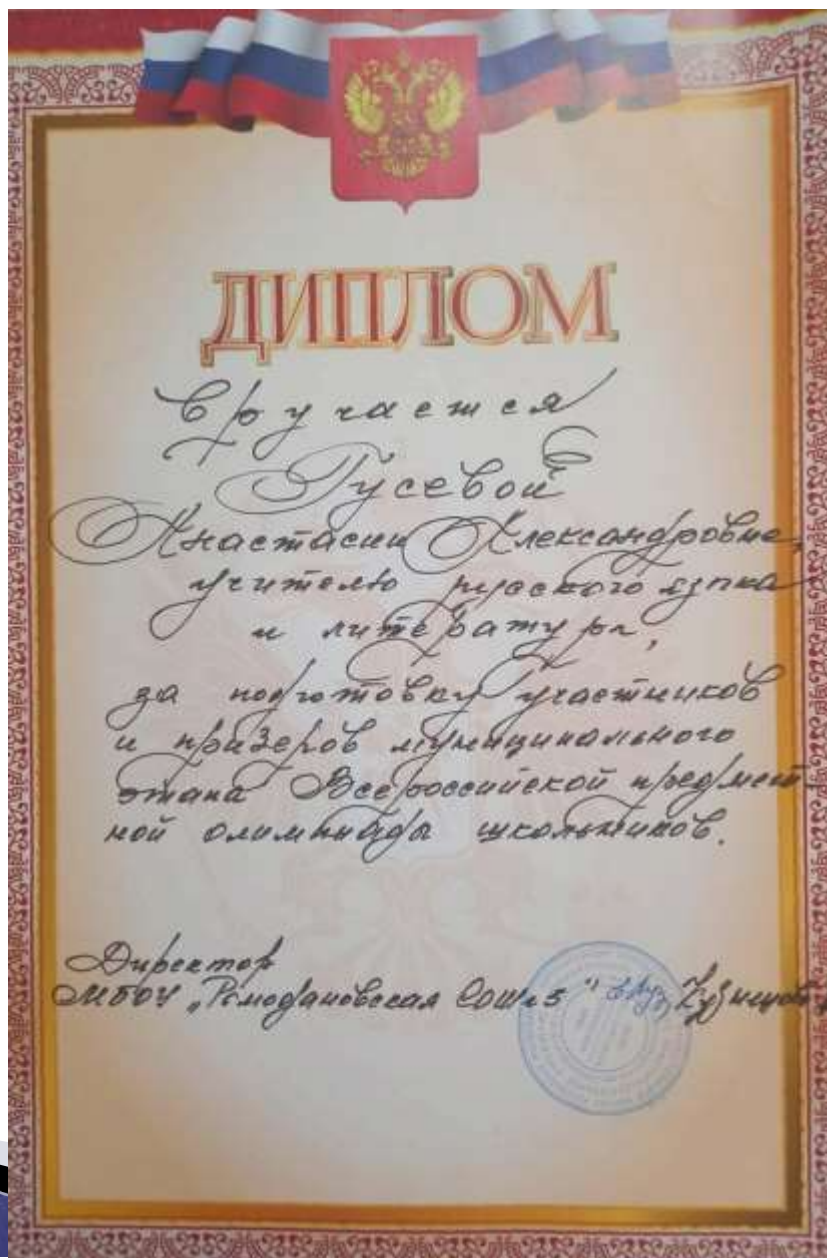 ДИПЛОМ
вручается
Гусевой
Анастасии Александровне,
учителю русского языка
и литературы,
за подготовку участников
и призеров муниципального
этапа Всероссийской предмет-
ной олимпиады школьников.
Директор
МБОУ „Ромодановская СОШ №3"